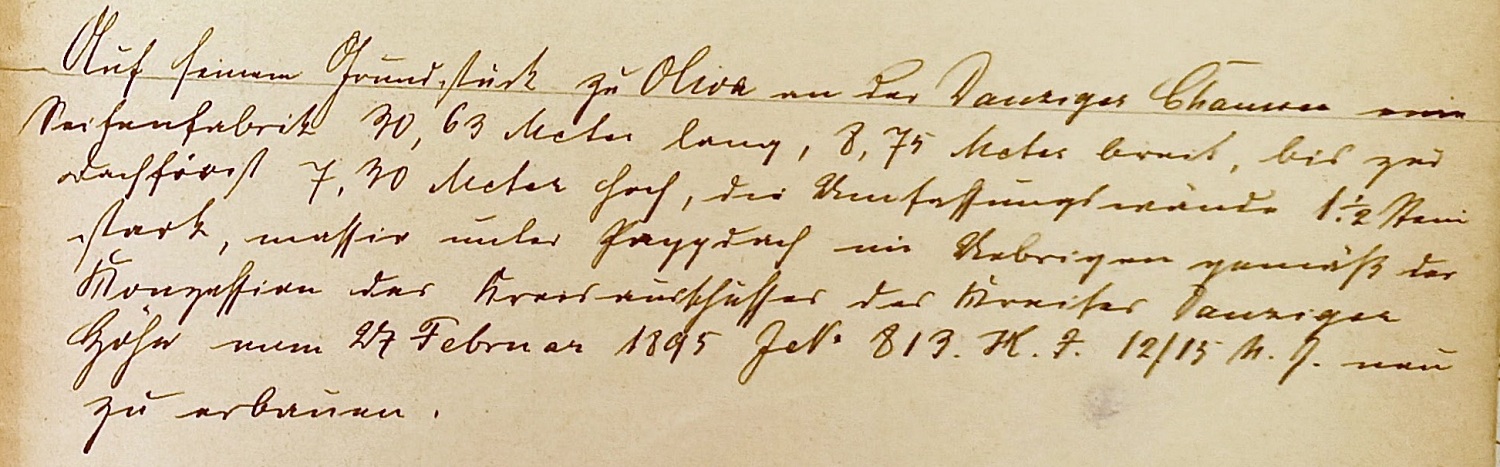 Auf seinem Grundstück zu Oliva an der Danziger Chaussee eine
Seifenfabrik 30,63 Meter lang, 8,75 Meter breit, bis zur
Dachförst 7,30 Meter hoch, die Umfassungswände 1.½ Stein
stark, massiv unter Pappdach im Uebrigen gemäß der
Konzession des Kreisausschusses des Kreises Danziger
Höhe vom 27 Februar 1895 813. K. 12/15 neu
zu erbauen.